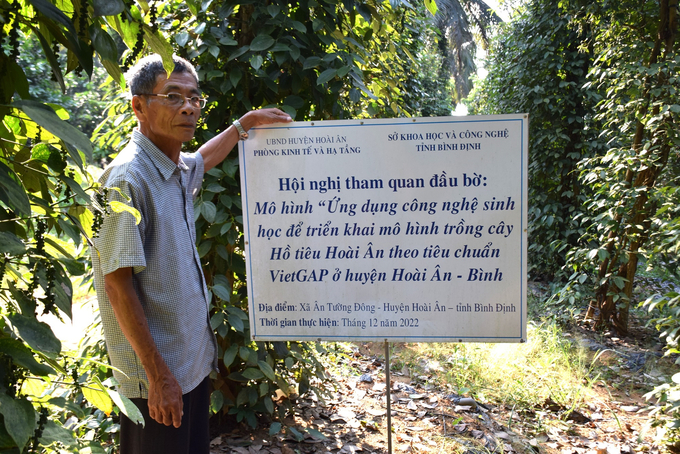 UBND HUYỆN HOÀI ÂN
PHÒNG KINH TẾ VÀ HẠ TẦNG
SỞ KHOA HỌC VÀ CÔNG NGHỆ
TỈNH BÌNH ĐỊNH
Hội nghị tham quan đầu bờ:
Mô hình “Ứng dụng công nghệ sinh
học để triển khai mô hình trồng cây
Hồ tiêu Hoài Ân theo tiêu chuẩn
VietGAP ở huyện Hoài Ân - Bình
Địa điểm: Xã Ân Tường Đông - Huyện Hoài Ân – tỉnh Bình Định
Thời gian thực hiện: Tháng 12 năm 2022